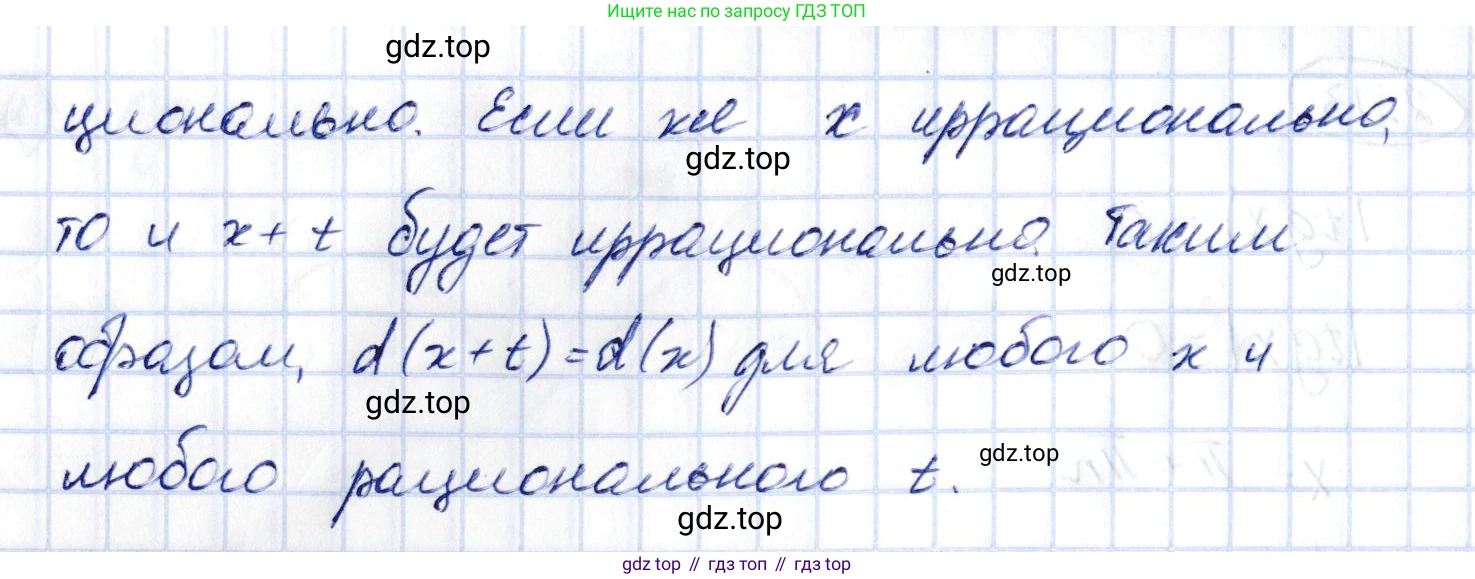 Ищите нас по запросу ГДЗ ТОП
gdz.top
ционально. Если же x иррационально,
gdz.top
то и x+t будет иррационально. Таким
gdz.top
образом, d(x+t)=d(x) для любого x и
gdz.top
любого рационального t.
gdz.top
gdz.top
gdz top // гдз топ // гдз top